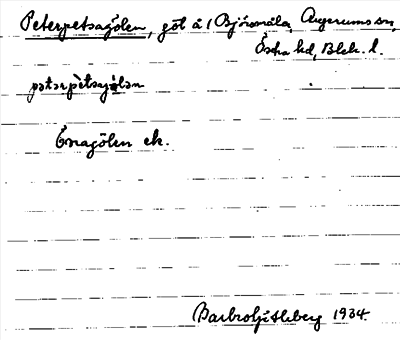 Peterpetsagölen, göl å 1 Björsmåla, Augerums sn,
Östra hd, Blek. l.
petərpètsajö̀lən
Enagölen ek.
Barbro Liljeberg 1934.